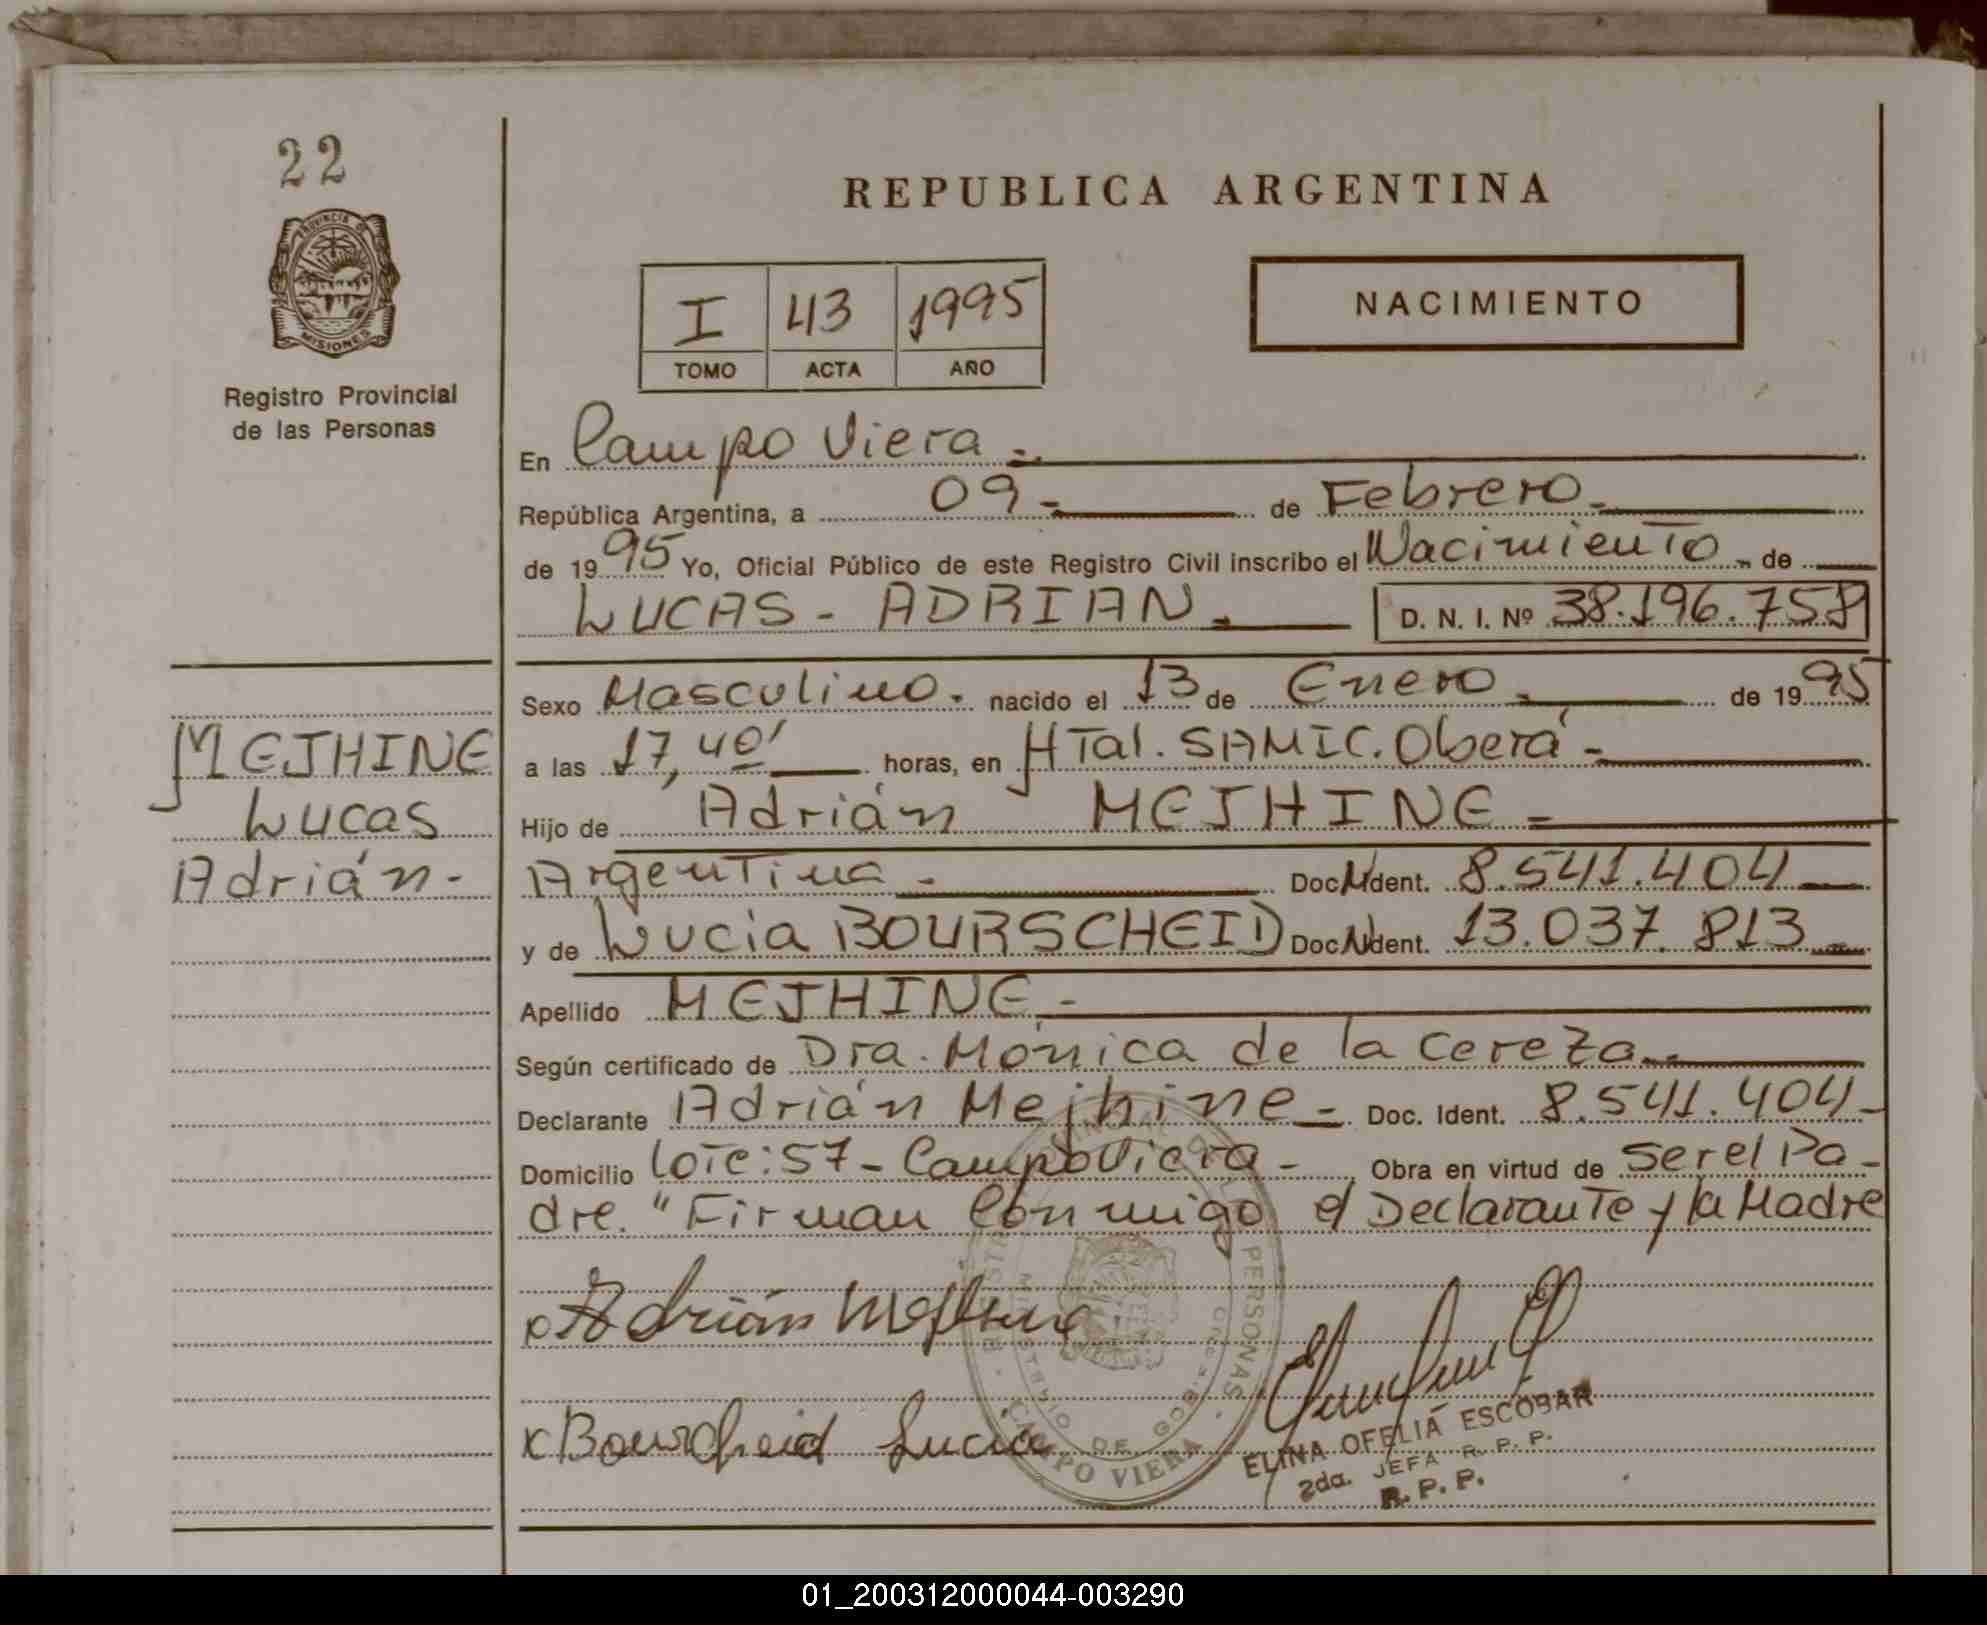 22
PROVINCIA DE
MISIONES
Registro Provincial
de las Personas
REPUBLICA ARGENTINA
I 43 1995
TOMO ACTA AÑO
NACIMIENTO
En Campo Viera.-
República Argentina, a 09- de Febrero-
de 1995 Yo, Oficial Público de este Registro Civil inscribo el Nacimiento - de
LUCAS - ADRIAN.- D. N. I. Nº 38.196.758
Sexo Masculino. nacido el 13 de Enero - de 1995
a las 17,40' horas, en HTal. SAMIC. Oberá -
MEJHINE
Lucas
Adrián-
Hijo de Adrián MEJHINE -
Argentina - Doc. N. Ident. 8.541.404
y de Lucia BOURSCHEID Doc. N. Ident. 13.037.813
Apellido MEJHINE -
Según certificado de Dra. Mónica de la Cereza.-
Declarante Adrián Mejhine - Doc. Ident. 8.541.404-
Domicilio Lote: 57 - Campo Viera - Obra en virtud de ser el Pa-
dre. "Firman Conmigo el Declarante y la Madre
x Adrián Mejhine
x Bourscheid Lucia
PERSONAS
MINISTERIO DE GOB.
CAMPO VIERA
ELINA OFELIA ESCOBAR
2da. JEFA R. P. P.
R. P. P.
01_200312000044-003290